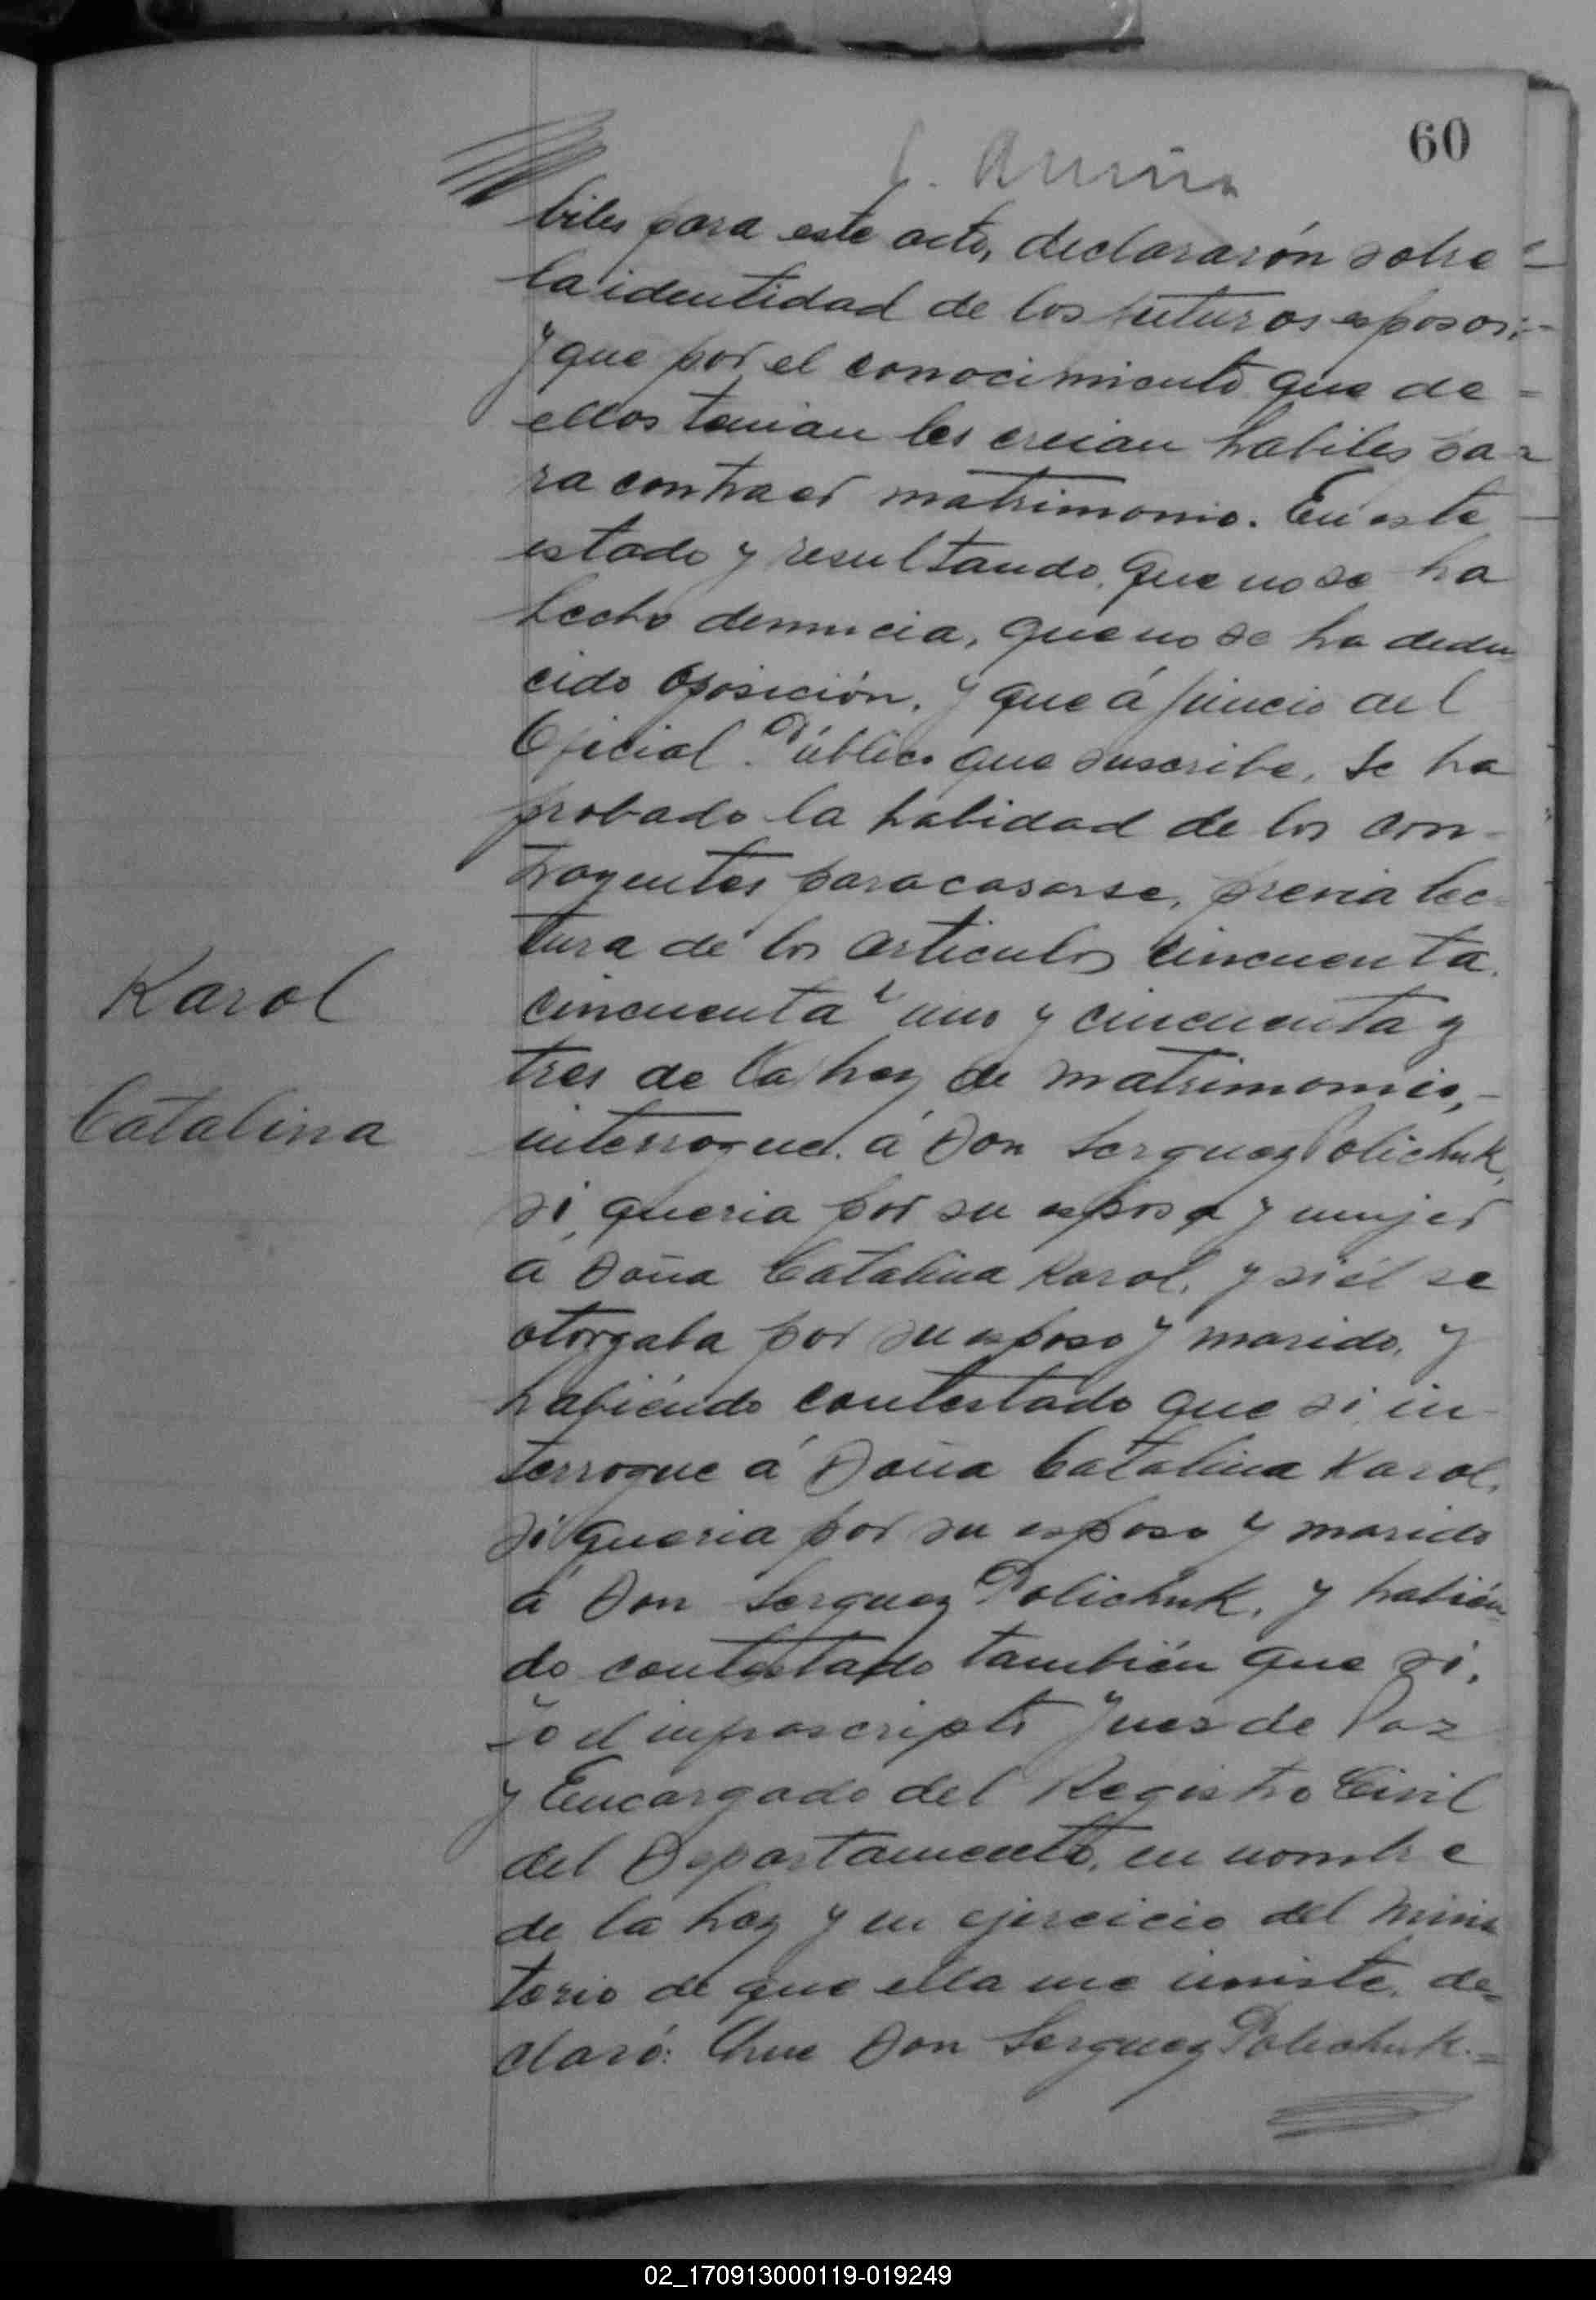 60
biles para este acto, declararón sobre
la identidad de los futuros esposos;
y que por el conocimiento que de
ellos tenian les creian habiles pa-
ra contraer matrimonio. En este
estado y resultando, que no se ha
hecho denuncia, que no se ha dedu
cido oposición, y que á juicio del
Oficial Público que suscribe, se ha
probado la habidad de los con-
trayentes para casarse, previa lec-
tura de los articulos cincuenta,
Karol
cincuenta y uno y cincuenta y
tres de la ley de matrimonio,-
Catalina
interrogué á Don Serguey Polichuk,
si, queria por su esposa y mujer
a Doña Catalina Karol, y si él se
otorgaba por su esposo y marido, y
habiéndo contestado que si, in
terrogue á Doña Catalina Karol,
si queria por su esposo y marido
á Don Serguey Polichuk, y habién
do contestado también que si,
Yo el infrascripto Juez de Paz
y Encargado del Registro Civil
del Departamento, en nombre
de la Ley y en ejercicio del Minis
terio de que ella me inviste, de=
claró: Que Don Serguey Polichuk.=
02_170913000119-019249